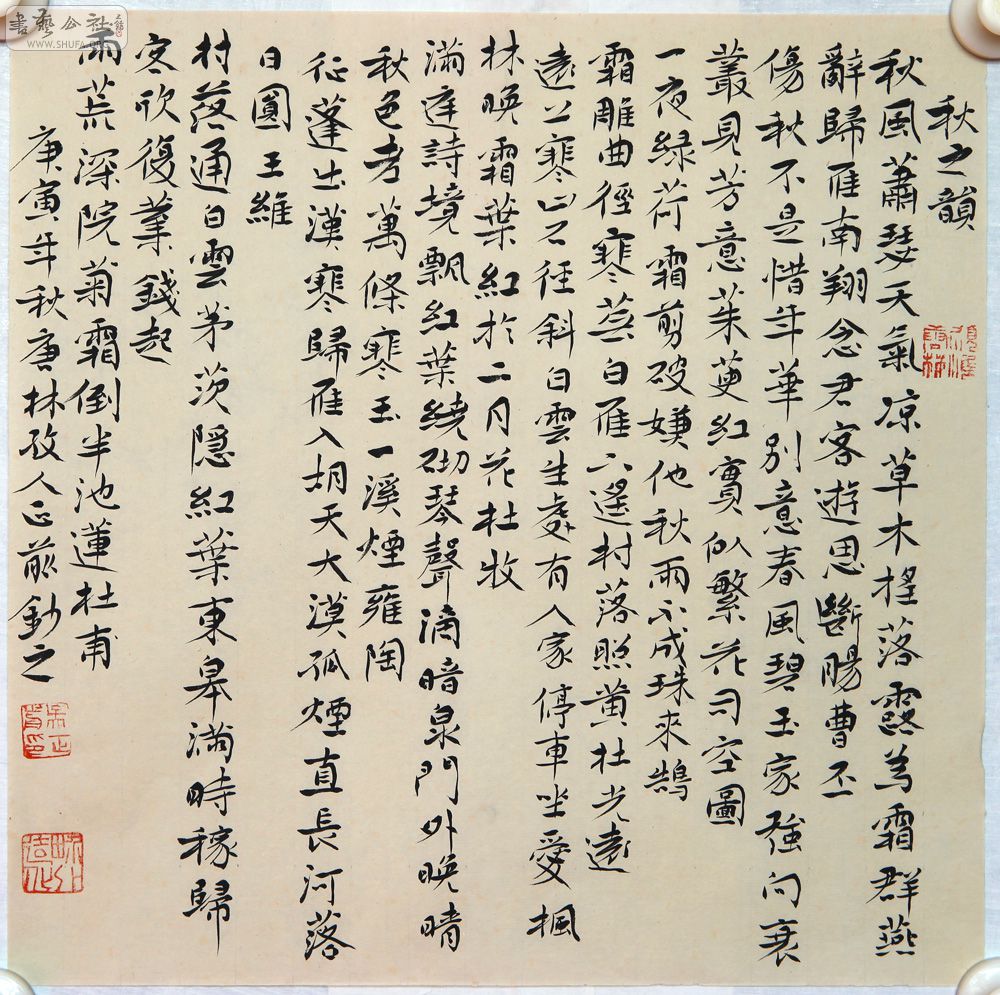 書藝公社
WWW.SHUFA.ORG
秋之韻
秋風蕭瑟天氣凉草木摇落露為霜群燕
辭歸雁南翔念君客遊思斷腸曹丕
傷秋不是惜年華別意春風碧玉家強向衰
叢見芳意茱萸紅實似繁花司空圖
一夜綠荷霜剪破嫌他秋雨不成珠來鵠
霜雕曲徑寒蕪白雁下遙村落照黃杜光遠
遠上寒山石徑斜白雲生處有人家停車坐愛楓
林晚霜葉紅於二月花杜牧
滿庭詩境飄紅葉繞砌琴聲滴暗泉門外晚晴
秋色老萬條寒玉一溪煙雍陶
征蓬出漢寒歸雁入胡天大漠孤煙直長河落
日圓王維
村落通白雲茅茨隱紅葉東皋滿時稼歸
客欣復業錢起
雨荒深院菊霜倒半池蓮杜甫
庚寅年秋唐林孜人正鈔之